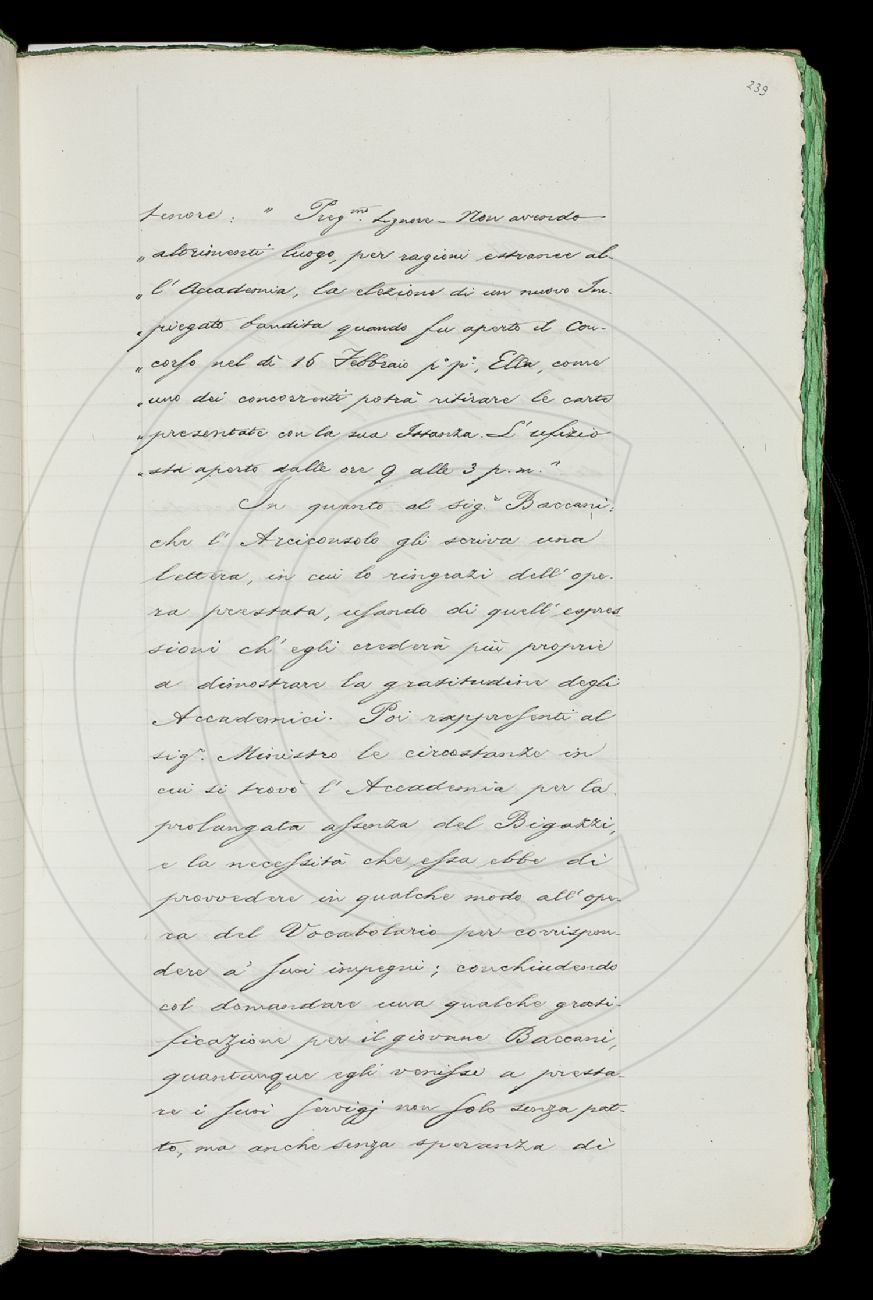 239
tenore: " Preg.mo Signore – Non avendo
" altrimenti luogo, per ragioni estranee al-
" l'Accademia, la elezione di un nuovo Im-
" piegato bandita quando fu aperto il Con-
" corso nel dì 16 Febbraio p.° p.°, Ella, come
" uno dei concorrenti potrà ritirare le carte
" presentate con la sua Istanza. L'ufizio
" sta aperto dalle ore 9 alle 3 p.m."
In quanto al sig.r Baccani:
che l'Arciconsolo gli scriva una
lettera, in cui lo ringrazi dell'ope-
ra prestata, usando di quell'espres
sioni ch'egli crederà più proprie
a dimostrare la gratitudine degli
Accademici. Poi rappresenti al
sig.r Ministro le circostanze in
cui si trovò l'Accademia per la
prolungata assenza del Bigazzi,
e la necessità che essa ebbe di
provvedere in qualche modo all'ope-
ra del Vocabolario per corrispon-
dere a' suoi impegni; conchiudendo
col domandare una qualche grati-
ficazione per il giovane Baccani,
quantunque egli venisse a presta-
re i suoi servigj non solo senza pat-
to, ma anche senza speranza di